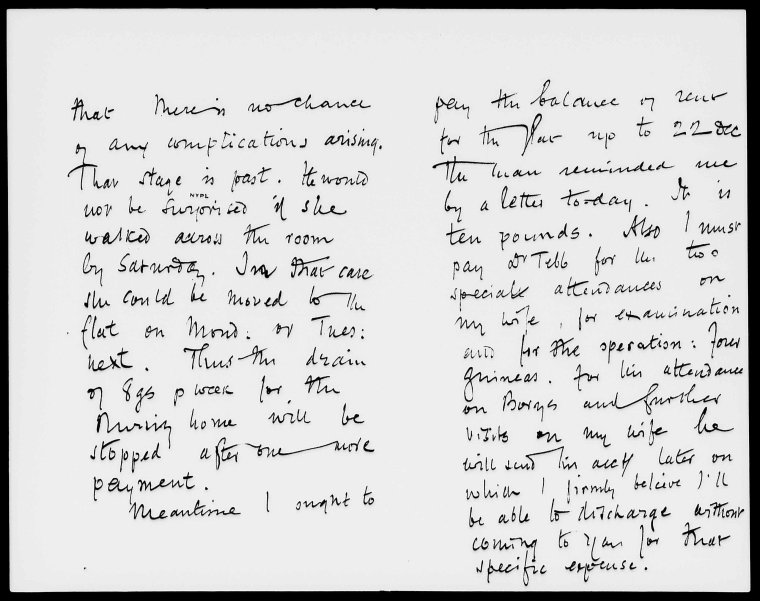 that there is no chance
of any complications arising.
That stage is past. He would
NYPL
not be surprised if she
walked across the room
by Saturday. In that case
she could be moved to the
flat on Mond: or Tues:
next. Thus the drain
of 8gs p week for the
Nursing home will be
stopped after one more
payment.
Meantime I ought to
pay the balance of rent
for the flat up to 22 Dec
The man reminded me
by a letter to-day. It is
ten pounds. Also I must
pay Dr Tebb for his two
special attendances on
my wife, for examination
and for the operation: four
guineas. For his attendance
on Borys and further
visits on my wife he
will send his acct later on
which I firmly beleive I'll
be able to discharge without
coming to you for that
specific expense.